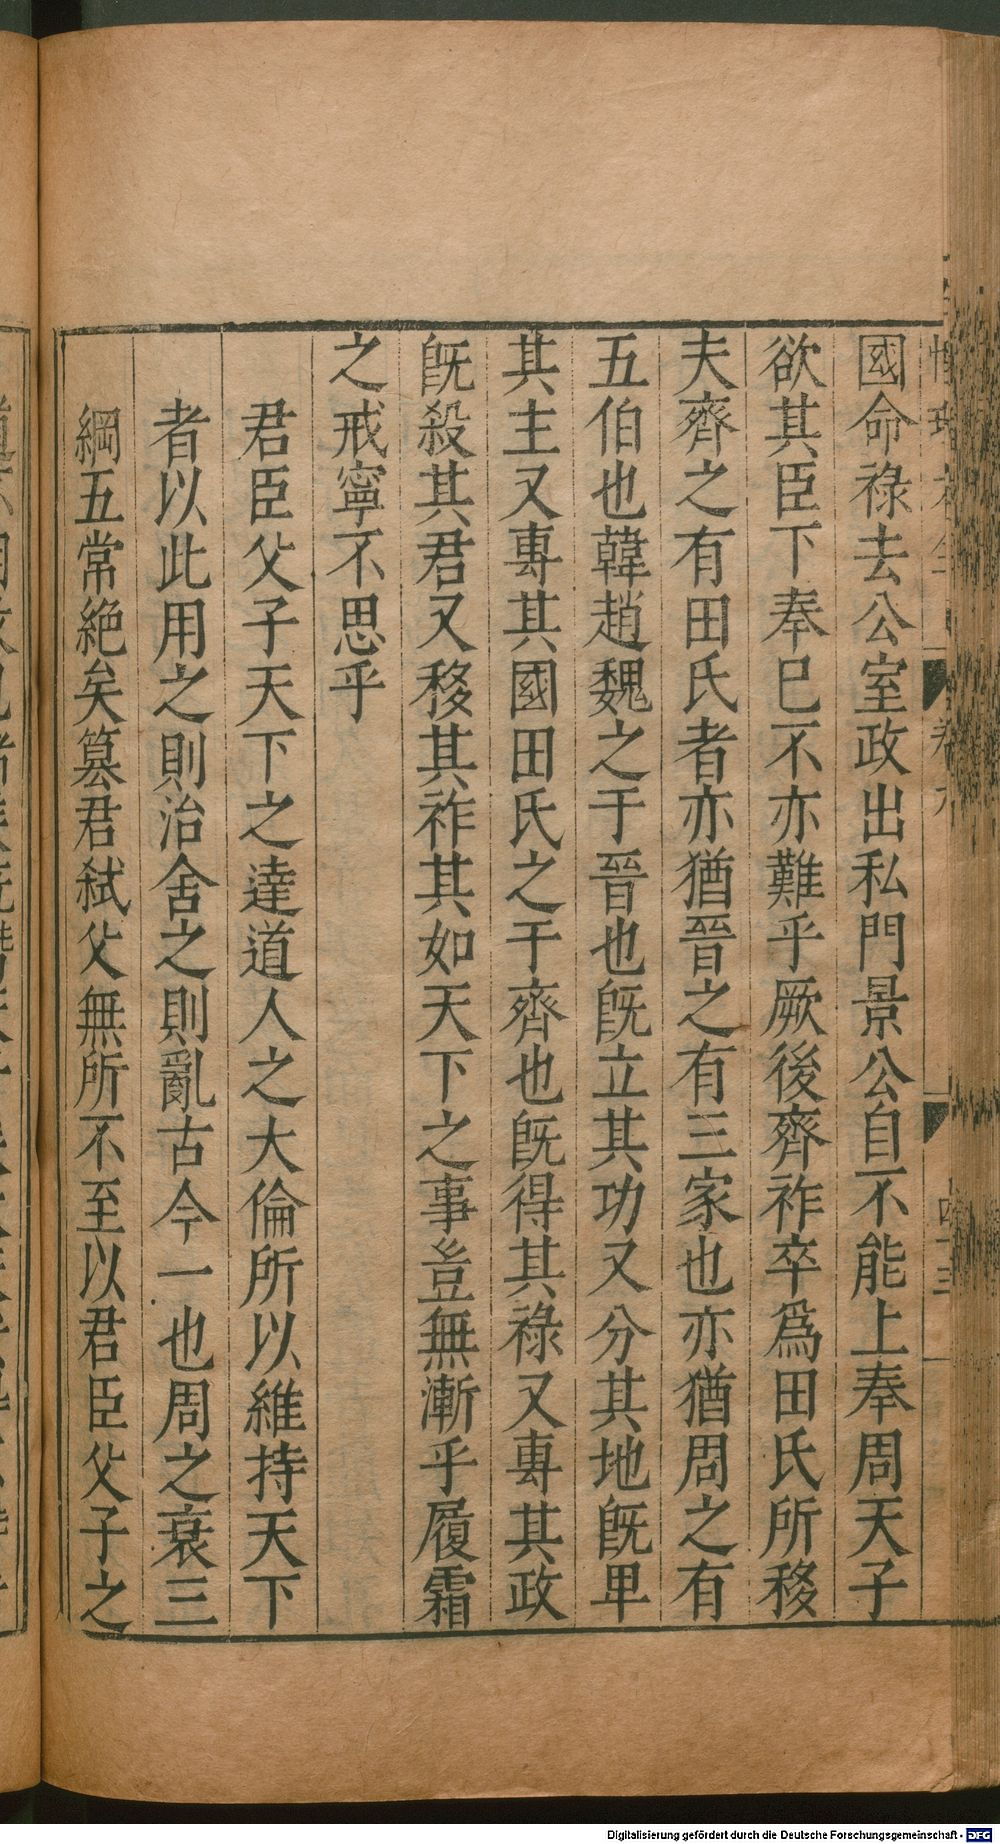 國命祿去公室政出私門景公自不能上奉周天子
欲其臣下奉巳不亦難乎厥後齊祚卒爲田氏所移
夫齊之有田氏者亦猶晉之有三家也亦猶周之有
五伯也韓趙魏之于晉也旣立其功又分其地旣卑
其主又專其國田氏之于齊也旣得其祿又專其政
旣殺其君又移其祚其如天下之事豈無漸乎履霜
之戒寧不思乎
君臣父子天下之達道人之大倫所以維持天下
者以此用之則治舍之則亂古今一也周之衰三
綱五常絶矣簒君弑父無所不至以君臣父子之
Digitalisierung gefördert durch die Deutsche Forschungsgemeinschaft - DFG